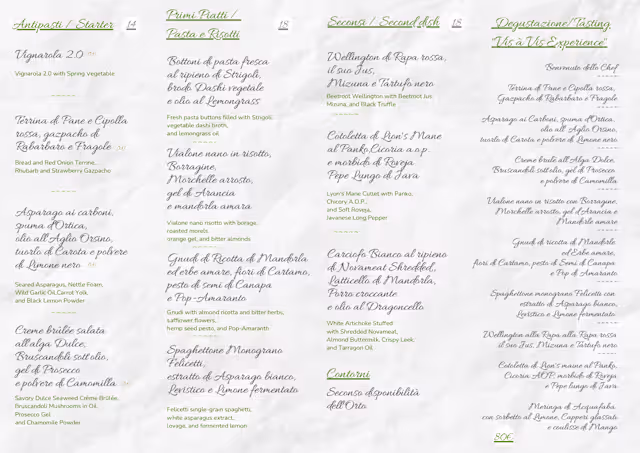 Antipasti / Starter 14
Vignarola 2.0
Vignarola 2.0 with Spring Vegetable
Terrina di Pane e Cipolla
rossa, gazpacho di
Rabarbaro e Fragole
Bread and Red Onion Terrine,
Rhubarb and Strawberry Gazpacho
Asparago ai carboni,
spuma d'Ortica,
olio all'Aglio Orsino,
tuorlo di Carota e polvere
di Limone nero
Seared Asparagus, Nettle Foam,
Wild Garlic Oil, Carrot Yolk,
and Black Lemon Powder
Creme brûlée salata
all'alga Dulce,
Bruscandoli sott'olio,
gel di Prosecco
e polvere di Camomilla
Savory Dulce Seaweed Crème Brûlée,
Bruscandoli Mushrooms in Oil,
Prosecco Gel
and Chamomile Powder
Primi Piatti /
Pasta e Risotti 18
Bottoni di pasta fresca
al ripieno di Strigoli,
brodo Dashi vegetale
e olio al Lemongrass
Fresh pasta buttons filled with Strigoli,
vegetable dashi broth,
and lemongrass oil
Vialone nano in risotto,
Borragine,
Morchelle arrosto,
gel di Arancia
e mandorla amara
Vialone nano risotto with borage,
roasted morels
orange gel, and bitter almonds
Gnudi di Ricotta di Mandorla
ed erbe amare, fiori di Cartamo,
pesto di semi di Canapa
e Pop-Amaranto
Gnudi with almond ricotta and bitter herbs,
safflower flowers,
hemp seed pesto, and Pop-Amaranth
Spaghettone Monograno
Felicetti,
estratto di Asparago bianco,
Levistico e Limone fermentato
Felicetti single-grain spaghetti,
white asparagus extract,
lovage, and fermented lemon
Seconsi / Second dish 18
Wellington di Rapa rossa,
il suo Jus,
Mizuna e Tartufo nero
Beetroot Wellington with Beetroot Jus
Mizuna, and Black Truffle
Cotoletta di Lion's Mane
al Panko, Cicoria a.o.p.
e morbido di Roveja
Pepe Lungo di Java
Lyon's Mane Cutlet with Panko,
Chicory A.O.P.,
and Soft Roveja,
Javanese Long Pepper
Carciofo Bianco al ripieno
di Novameat Shredded,
Latticello di Mandorla,
Porro croccante
e olio al Dragoncello
White Artichoke Stuffed
with Shredded Novameat,
Almond Buttermilk, Crispy Leek
and Tarragon Oil
Contorni
Seconso disponibilità
dell'Orto
Degustazione/Tasting
"Vis à Vis Experience"
Benvenuto dello Chef
Terrina di Pane e Cipolla rossa,
Gazpacho di Rabarbaro e Fragole
Asparago ai Carboni, spuma d'Ortica,
olio all'Aglio Orsino,
tuorlo di Carota e polvere di Limone nero
Creme brulè all'Alga Dulce,
Bruscandoli sott'olio, gel di Prosecco
e polvere di Camomilla
Vialone nano in risotto con Borragine,
Morchelle arrosto, gel d'Arancia e
Mandorle amare
Gnudi di ricotta di Mandorle
ed Erbe amare,
fiori di Cartamo, pesto di Semi di Canapa
e Pop di Amaranto
Spaghettone monograno Felicetti con
estratto di Asparago bianco,
Levistico e Limone fermentato
Wellington alla Rapa alla Rapa rossa
il suo Jus, Mizuna e Tartufo nero
Cotoletta di Lion's mane al Panko,
Cicoria AOP, morbido di Roveja
e Pepe lungo di Java
Meringa di Acquafaba,
con sorbetto al Limone, Capperi glassati
e coulisse di Mango
80€